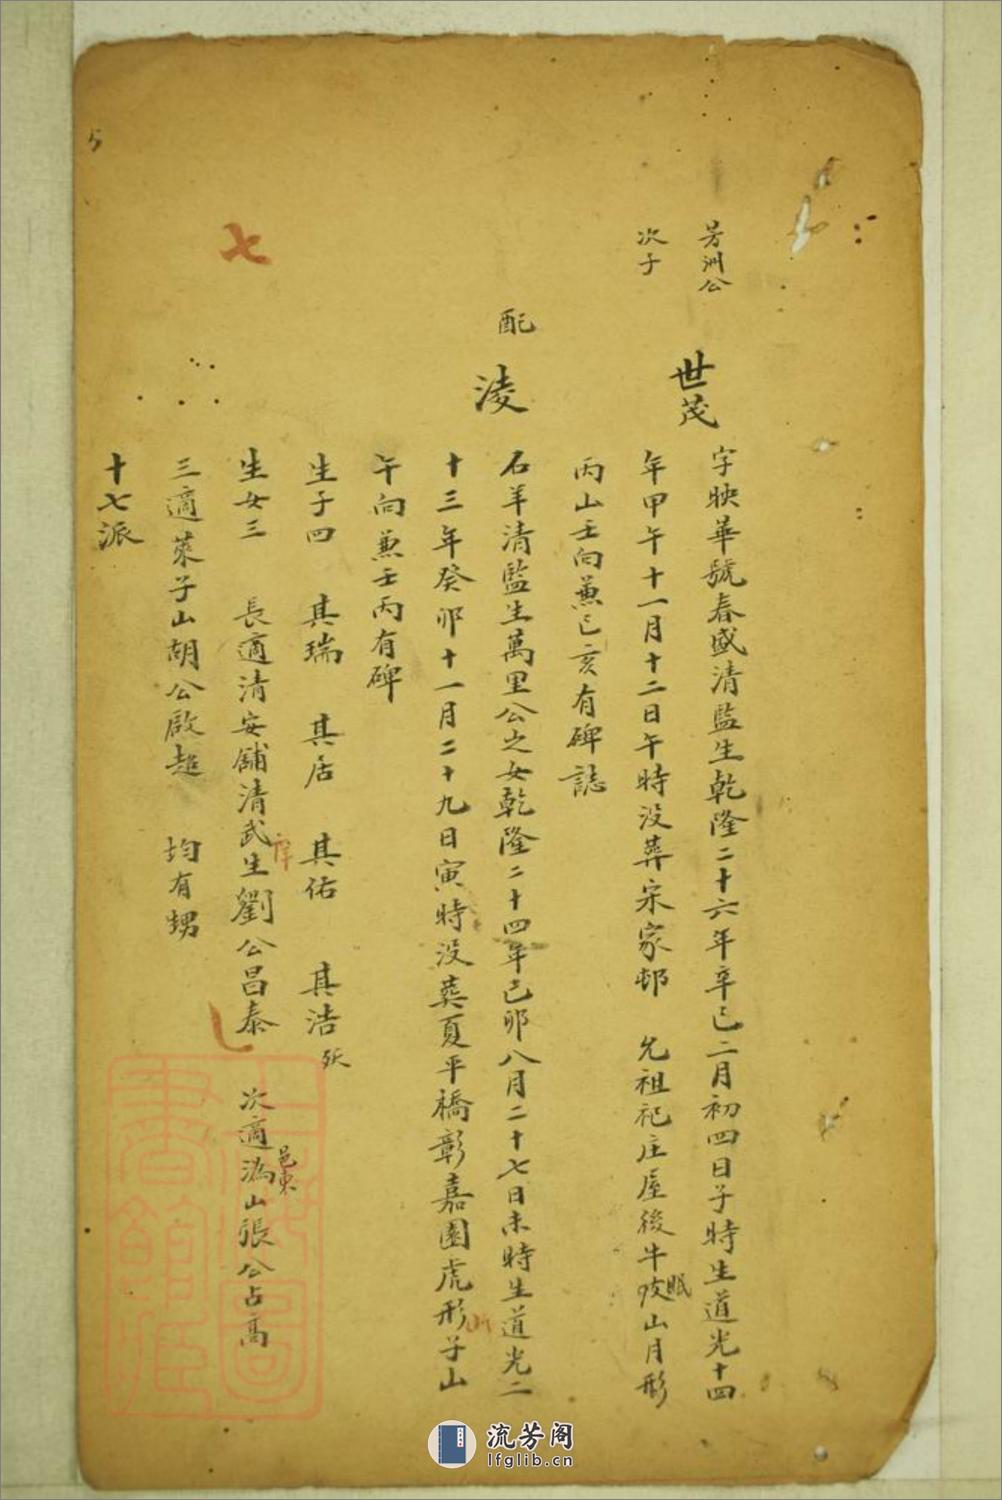 芳洲公
次子
世茂
字映華號春盛清監生乾隆二十六年辛巳二月初四日子時生道光十四
年甲午十一月十二日午時没葬宋家邨 先祖祀庄屋後牛眠山月形
丙山壬向兼巳亥有碑誌
配
淩
石羊清監生萬里公之女乾隆二十四年己卯八月二十七日未時生道光二
十三年癸卯十一月二十九日寅時没葬夏平橋彰嘉園虎形子山
午向兼壬丙有碑
生子四 其瑞 其居 其佑 其浩 殀
生女三 長適清安鋪清武生劉公昌泰 次適邑東溈山張公占高
三適萊子山胡公啟超 均有甥
十七派
七
流芳阁
lfglib.cn